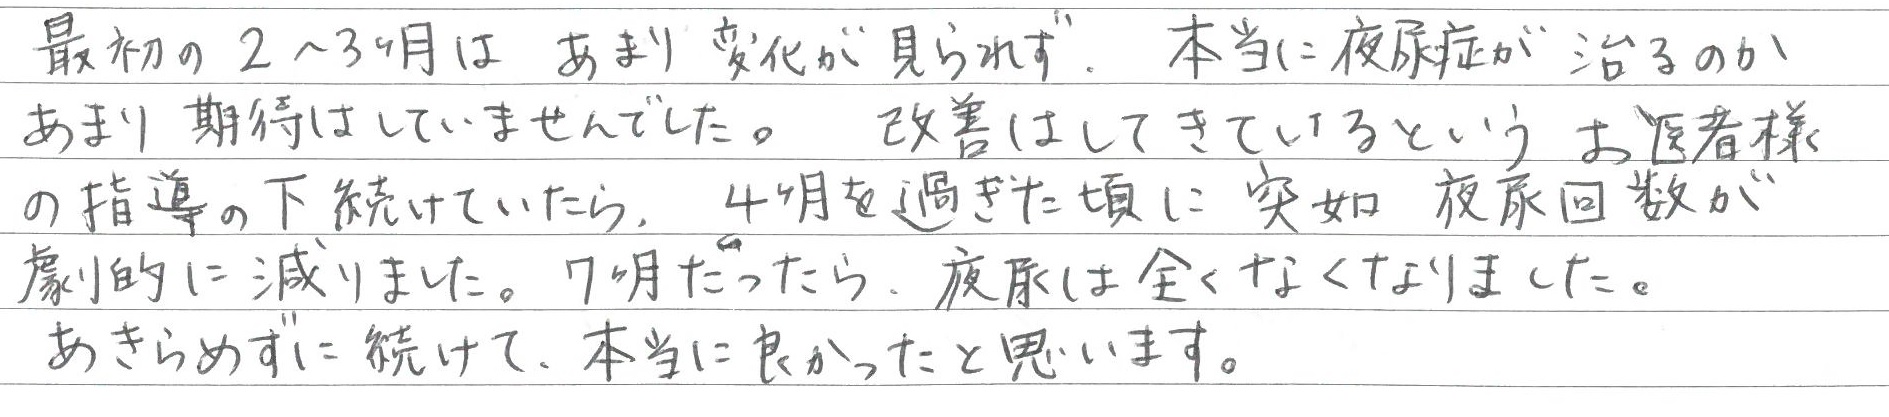 最初の2～3ヶ月は あまり変化が見られず、本当に夜尿症が治るのか
あまり期待はしていませんでした。 改善はしてきているという お医者様
の指導の下続けていたら、4ヶ月を過ぎた頃に突如 夜尿回数が
劇的に減りました。7ヶ月たったら、夜尿は全くなくなりました。
あきらめずに続けて、本当に良かったと思います。